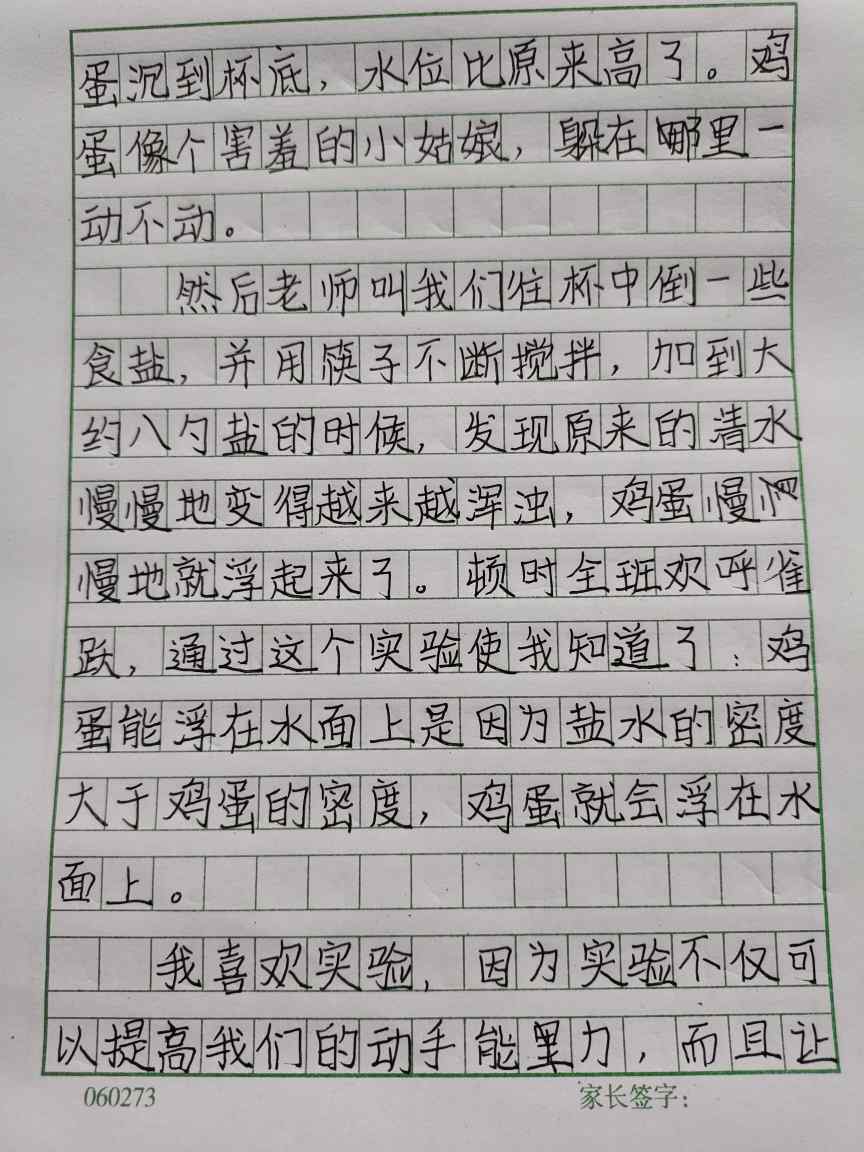 蛋沉到杯底，水位比原来高了。鸡
蛋像个害羞的小姑娘，躲在哪里一
动不动。
然后老师叫我们往杯中倒一些
食盐，并用筷子不断搅拌，加到大
约八勺盐的时候，发现原来的清水
慢慢地变得越来越浑浊，鸡蛋慢
慢地就浮起来了。顿时全班欢呼雀
跃，通过这个实验使我知道了：鸡
蛋能浮在水面上是因为盐水的密度
大于鸡蛋的密度，鸡蛋就会浮在水
面上。
我喜欢实验，因为实验不仅可
以提高我们的动手能里力，而且让
060273 家长签字：